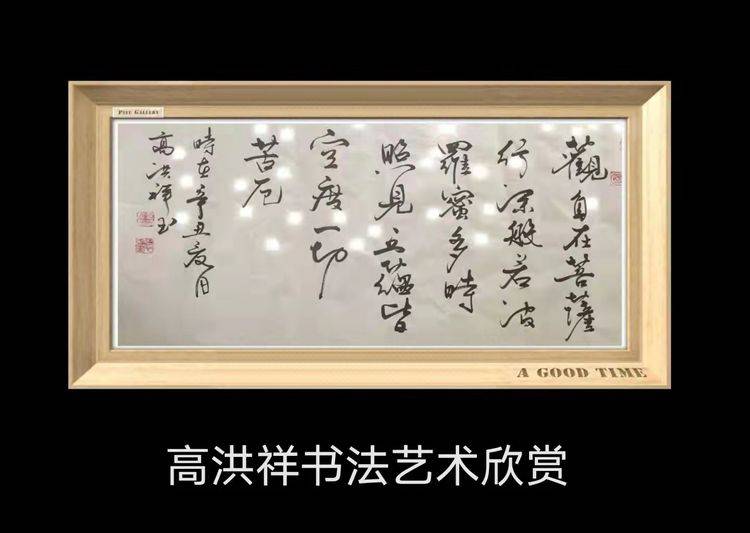 PITU GALLERY
觀自在菩薩
行深般若波
羅蜜多時
照見五蘊皆
空度一切
苦厄
時在辛丑夏月
高洪祥書
A GOOD TIME
高洪祥书法艺术欣赏